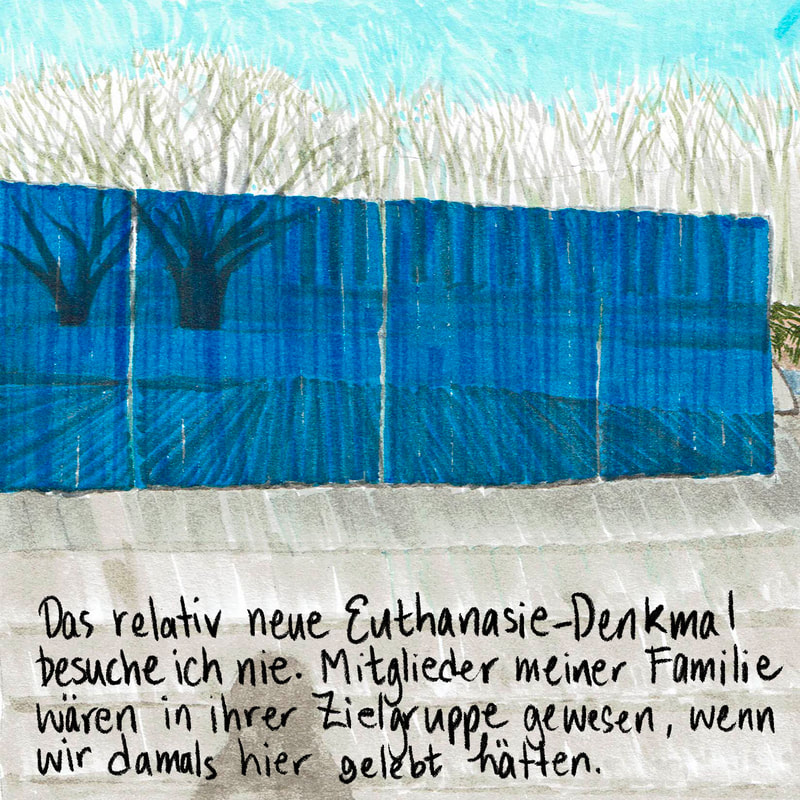 Das relativ neue Euthanasie-Denkmal
besuche ich nie. Mitglieder meiner Familie
wären in ihrer Zielgruppe gewesen, wenn
wir damals hier gelebt hätten.